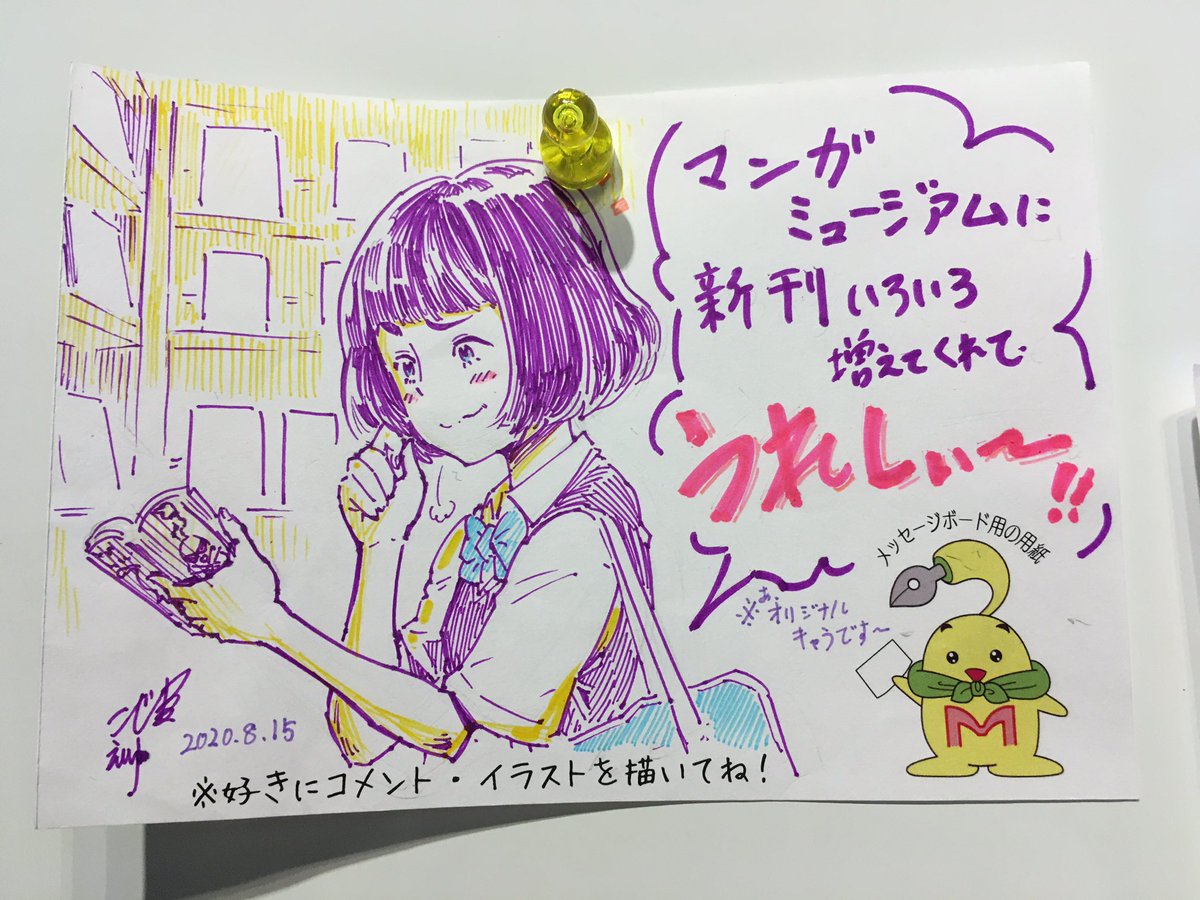 マンガ
ミュージアムに
新刊いろいろ
増えてくれて
うれしぃ〜!!
メッセージボード用の用紙
※あ、オリジナル
キャラです〜
M
2020.8.15
※好きにコメント・イラストを描いてね!